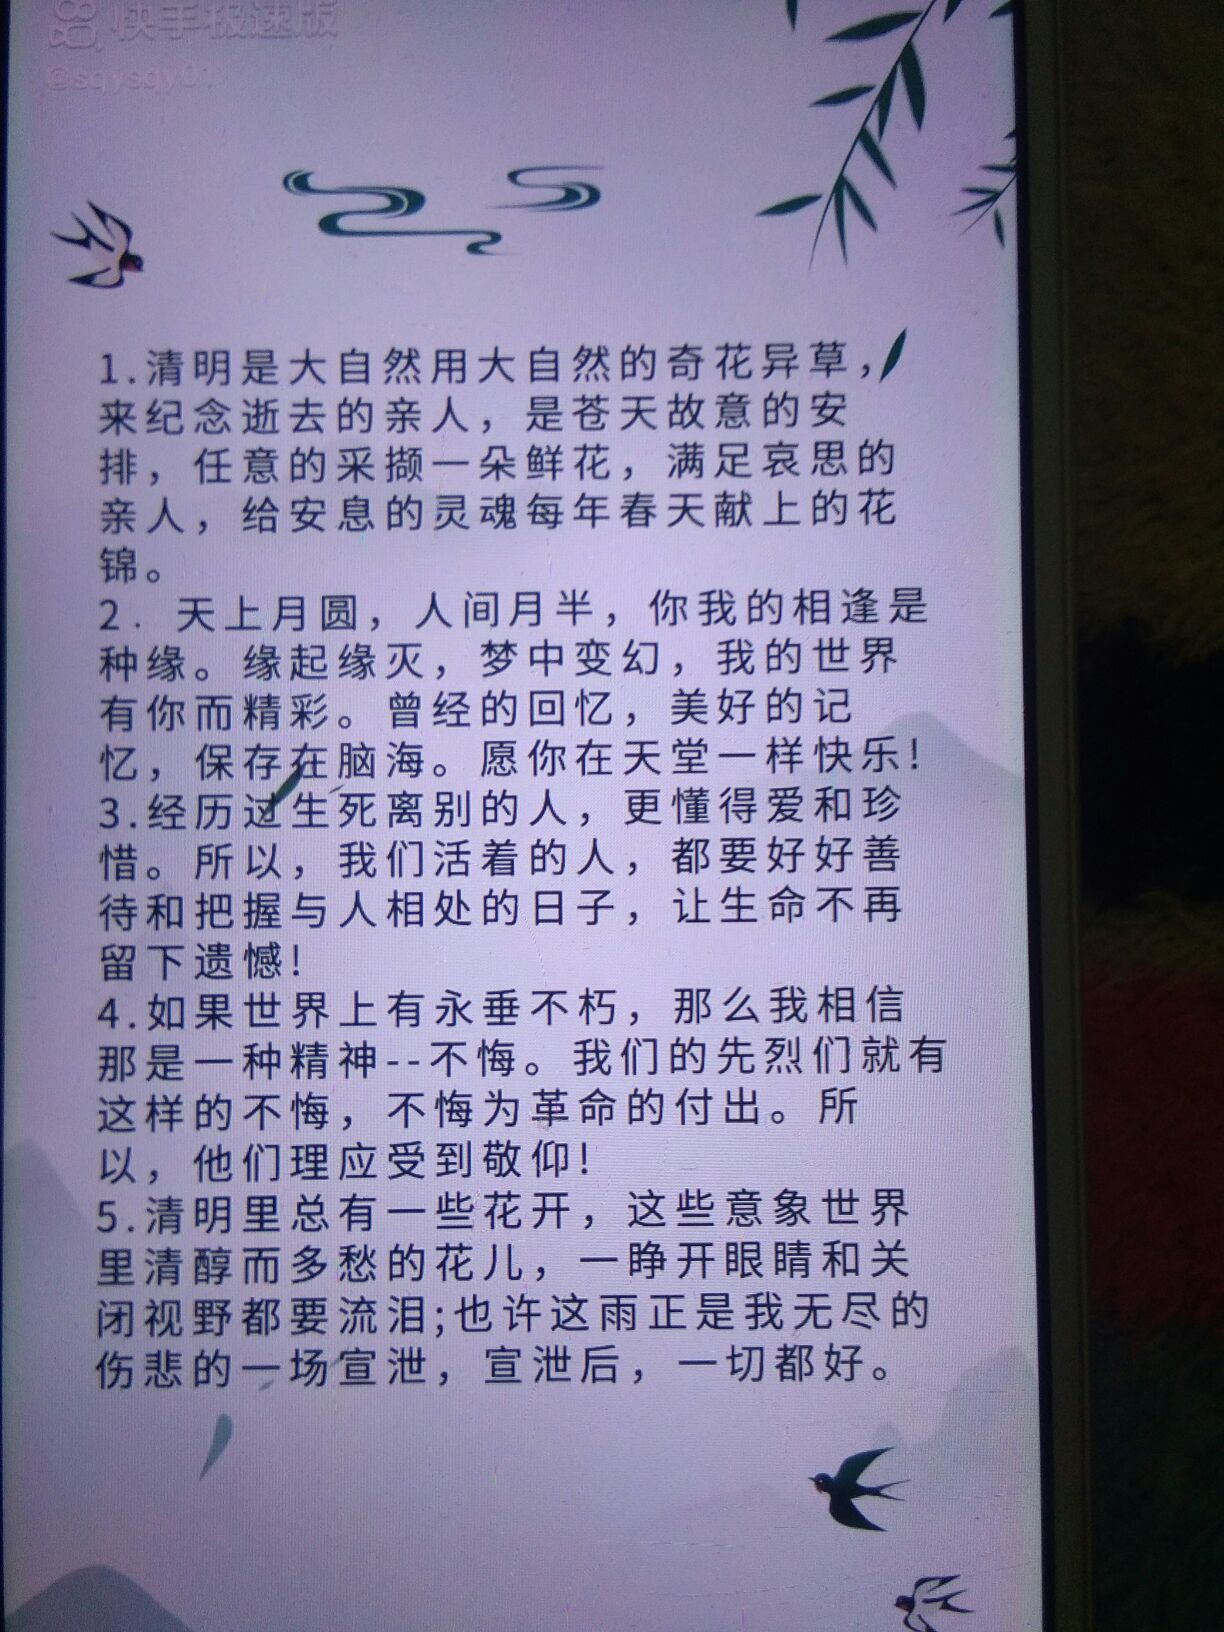 快手极速版
@sqysqy01
1.清明是大自然用大自然的奇花异草，
来纪念逝去的亲人，是苍天故意的安
排，任意的采撷一朵鲜花，满足哀思的
亲人，给安息的灵魂每年春天献上的花
锦。
2. 天上月圆，人间月半，你我的相逢是
种缘。缘起缘灭，梦中变幻，我的世界
有你而精彩。曾经的回忆，美好的记
忆，保存在脑海。愿你在天堂一样快乐！
3.经历过生死离别的人，更懂得爱和珍
惜。所以，我们活着的人，都要好好善
待和把握与人相处的日子，让生命不再
留下遗憾！
4.如果世界上有永垂不朽，那么我相信
那是一种精神--不悔。我们的先烈们就有
这样的不悔，不悔为革命的付出。所
以，他们理应受到敬仰！
5.清明里总有一些花开，这些意象世界
里清醇而多愁的花儿，一睁开眼睛和关
闭视野都要流泪;也许这雨正是我无尽的
伤悲的一场宣泄，宣泄后，一切都好。